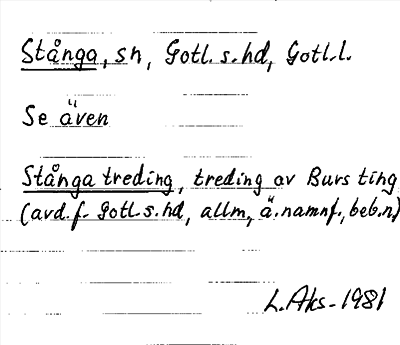 Stånga, sn, Gotl. s. hd, Gotl. l.
Se även
Stånga treding, treding av Burs ting
(avd. f. Gotl. s. hd, allm, ä. namnf., beb. n)
L. Aks - 1981